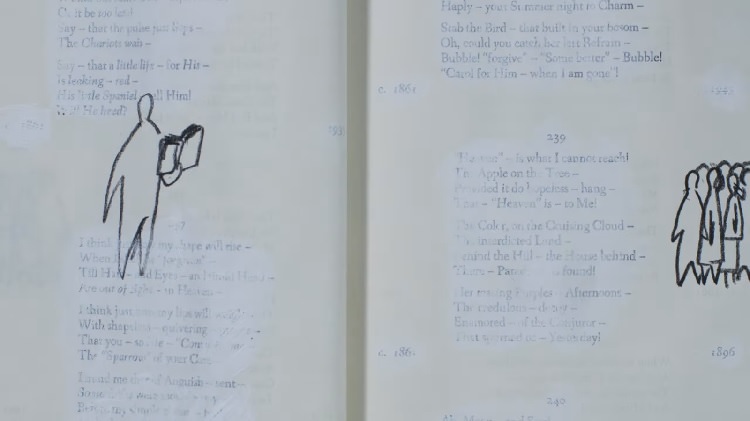 Or it be too late!
Say – that the pulse just lisps –
The Chariots wait –
Say – that a little life – for His –
is leaking – red –
His little Spaniel – tell Him!
Will He heed?
c. 1861
1935
237
I think just how my shape will rise –
When I shall be "forgiven" –
Till Hair – and Eyes – and timid Head –
Are out of sight – in Heaven –
I think just how my lips will weigh –
With shapeless – quivering – prayer –
That you – so late – "Consider" me –
The "Sparrow" of your Care –
I mind me that of Anguish – sent –
Some drifts were moved
Before my simple bosom
Haply – your Summer night to Charm –
Slob the Bird – that built in your bosom –
Oh, could you catch her last Refrain –
Bubble! "forgive" – "Some better" – Bubble!
"Carol for Him – when I am gone"!
c. 1861
1945
239
"Heaven" – is what I cannot reach!
The Apple on the Tree –
Provided it do hopeless – hang –
That – "Heaven" is – to Me!
The Color, on the Cruising Cloud –
The interdicted Land –
Behind the Hill – the House behind –
There – Paradise – is found!
Her teasing Purples – Afternoons –
The credulous – decoy –
Enamored – of the Conjuror –
That spurned us – Yesterday!
c. 1861
1896
240